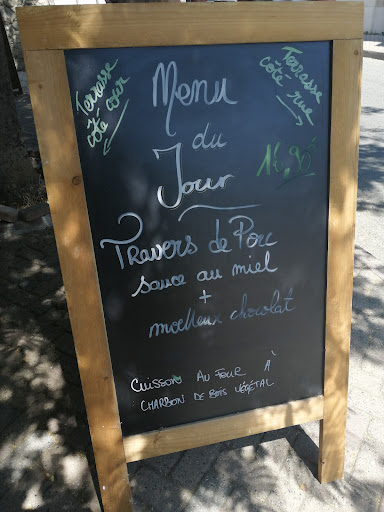 Terrasse
côté cour
Terrasse
côté rue
Menu
du
Jour
16,90
Travers de Porc
sauce au miel
+
moelleux chocolat
CUISSON AU FOUR À
CHARBON DE BOIS VÉGÉTAL